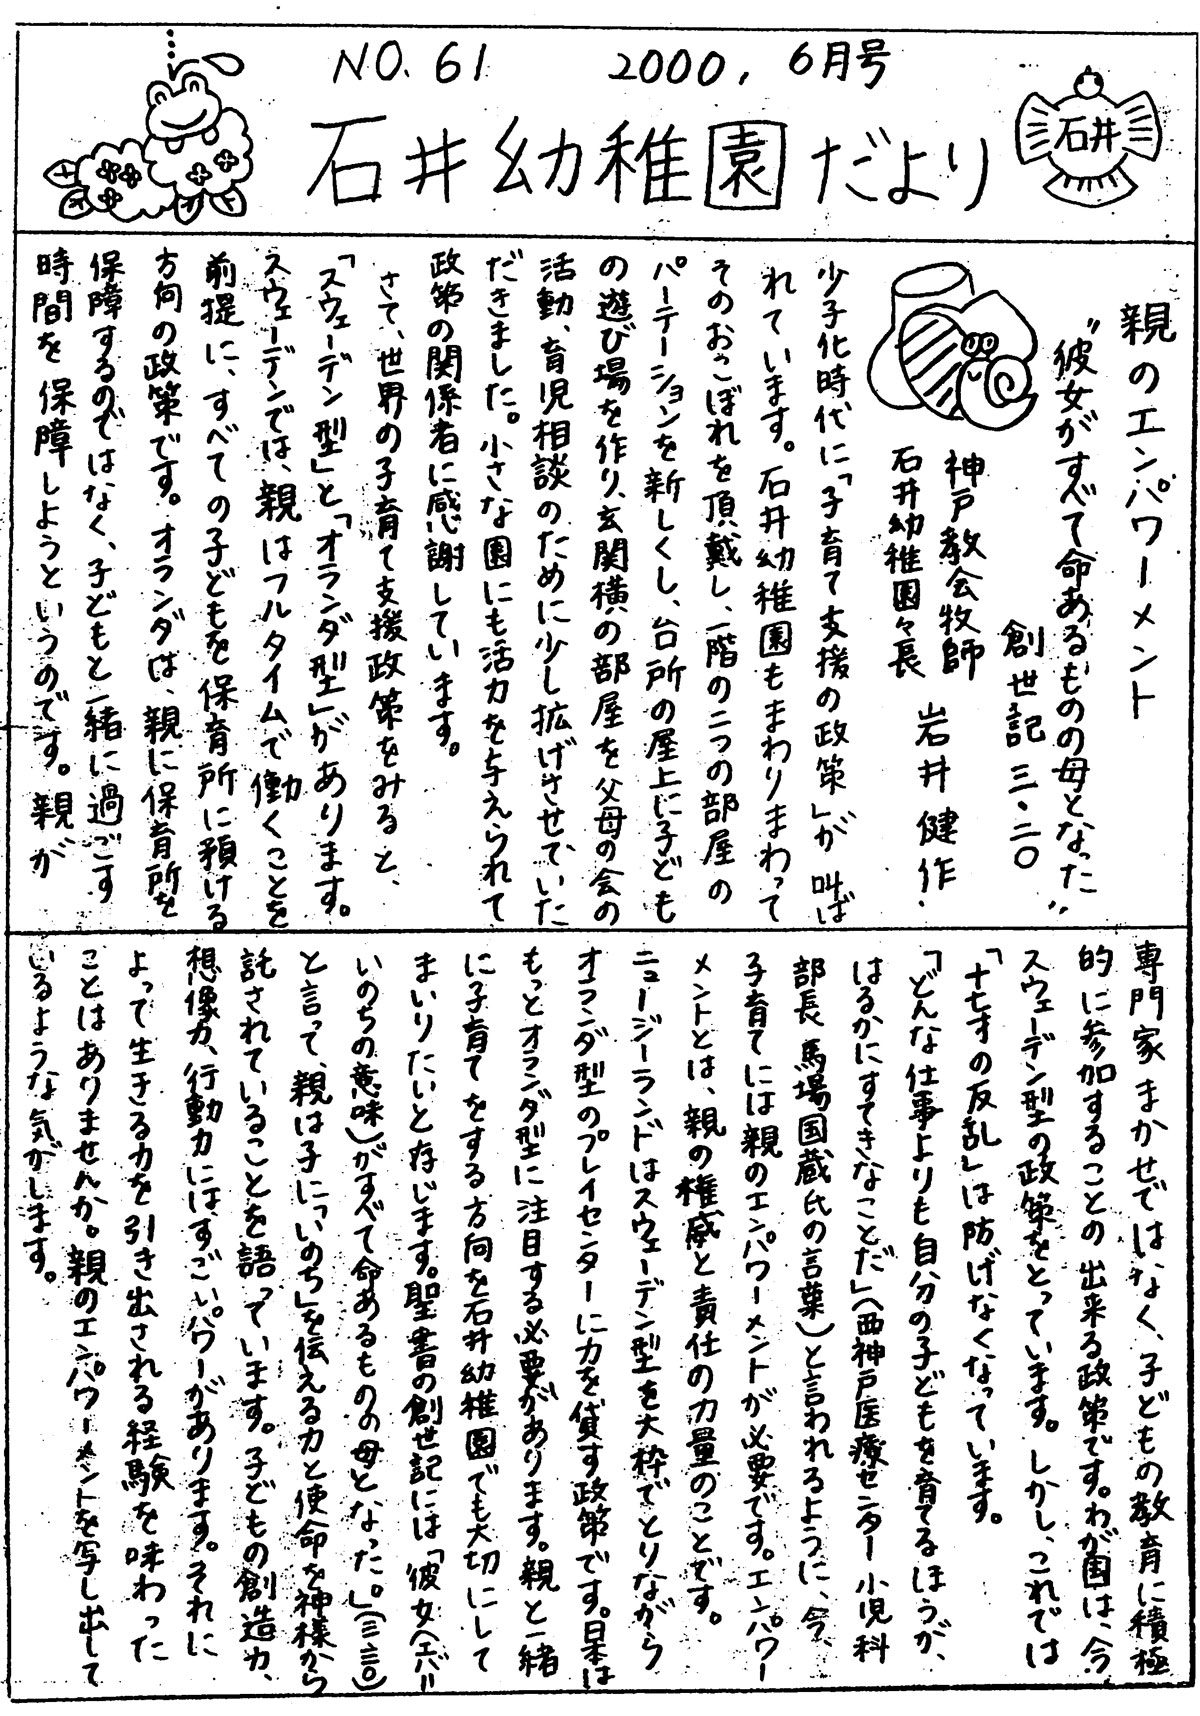 NO. 61　2000. 6月号
石井幼稚園だより
石井
親のエンパワーメント
"彼女がすべて命あるものの母となった"
創世記 三・二〇
神戸教会牧師
石井幼稚園々長　岩井 健作
少子化時代に「子育て支援の政策」が叫ば
れています。石井幼稚園もまわりまわって
そのおこぼれを頂戴し、一階の二つの部屋の
パーテーションを新しくし、台所の屋上に子ども
の遊び場を作り、玄関横の部屋を父母の会の
活動、育児相談のために少し拡げさせていた
だきました。小さな園にも活力を与えられて
政策の関係者に感謝しています。
さて、世界の子育て支援政策をみると、
「スウェーデン型」と「オランダ型」があります。
スウェーデンでは、親はフルタイムで働くことを
前提に、すべての子どもを保育所に預ける
方向の政策です。オランダは、親に保育所を
保障するのではなく、子どもと一緒に過ごす
時間を保障しようというのです。親が
専門家まかせではなく、子どもの教育に積極
的に参加することの出来る政策です。わが国は、今、
スウェーデン型の政策をとっています。しかし、これでは
「十七才の反乱」は防げなくなっています。
「どんな仕事よりも自分の子どもを育てるほうが、
はるかにすてきなことだ」(西神戸医療センター小児科
部長 馬場国蔵氏の言葉)と言われるように、今、
子育てには親のエンパワーメントが必要です。エンパワー
メントとは、親の権威と責任の力量のことです。
ニュージーランドはスウェーデン型を大枠でとりながら
オランダ型のプレイセンターに力を貸す政策です。日本は
もっとオランダ型に注目する必要があります。親と一緒
に子育てをする方向を石井幼稚園でも大切にして
まいりたいと存じます。聖書の創世記には「彼女(エバ=
いのちの意味)がすべて命あるものの母となった。」(三・二〇)
と言って、親は子に「いのち」を伝える力と使命を神様から
託されていることを語っています。子どもの創造力、
想像力、行動力にはすごいパワーがあります。それに
よって生きる力を引き出される経験を味わった
ことはありませんか。親のエンパワーメントを写し出して
いるような気がします。